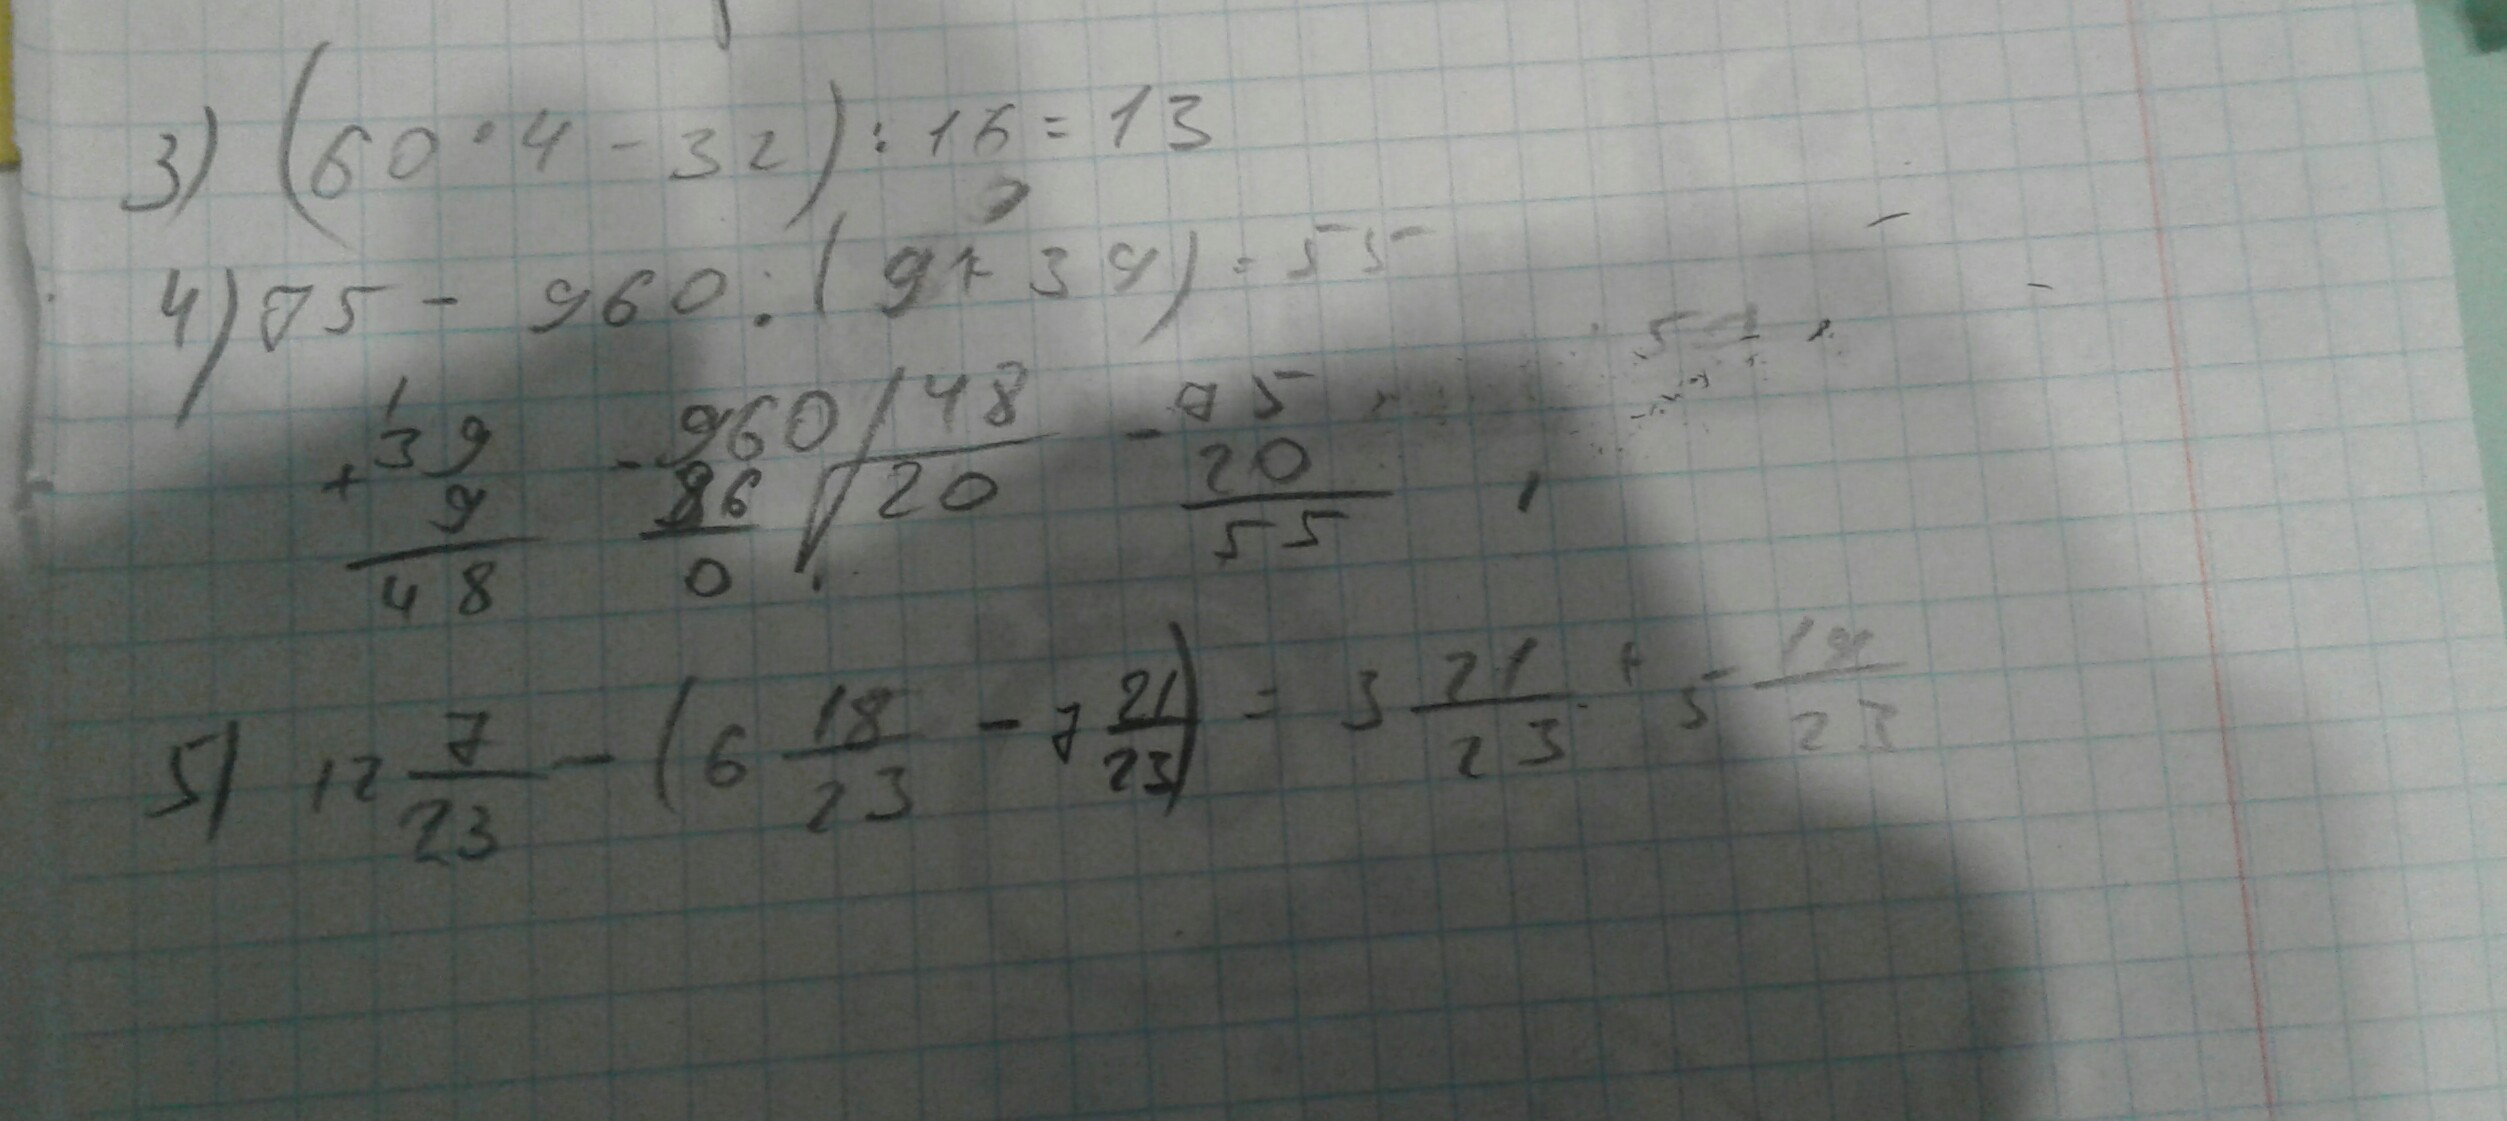 3) (60·4-32):16=13
4) 75 - 960:(9+39)=55
1
39 -960 48 -75
+ 9 96 20 20
48 0 55
5) 12 7/23 - (6 18/23 - 7 21/23) = 3 21/23 + 5
23